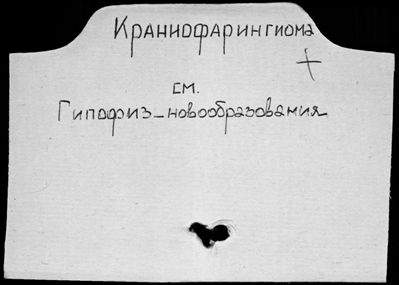 Краниофарингиома
+
см.
Гипофиз-новообразования